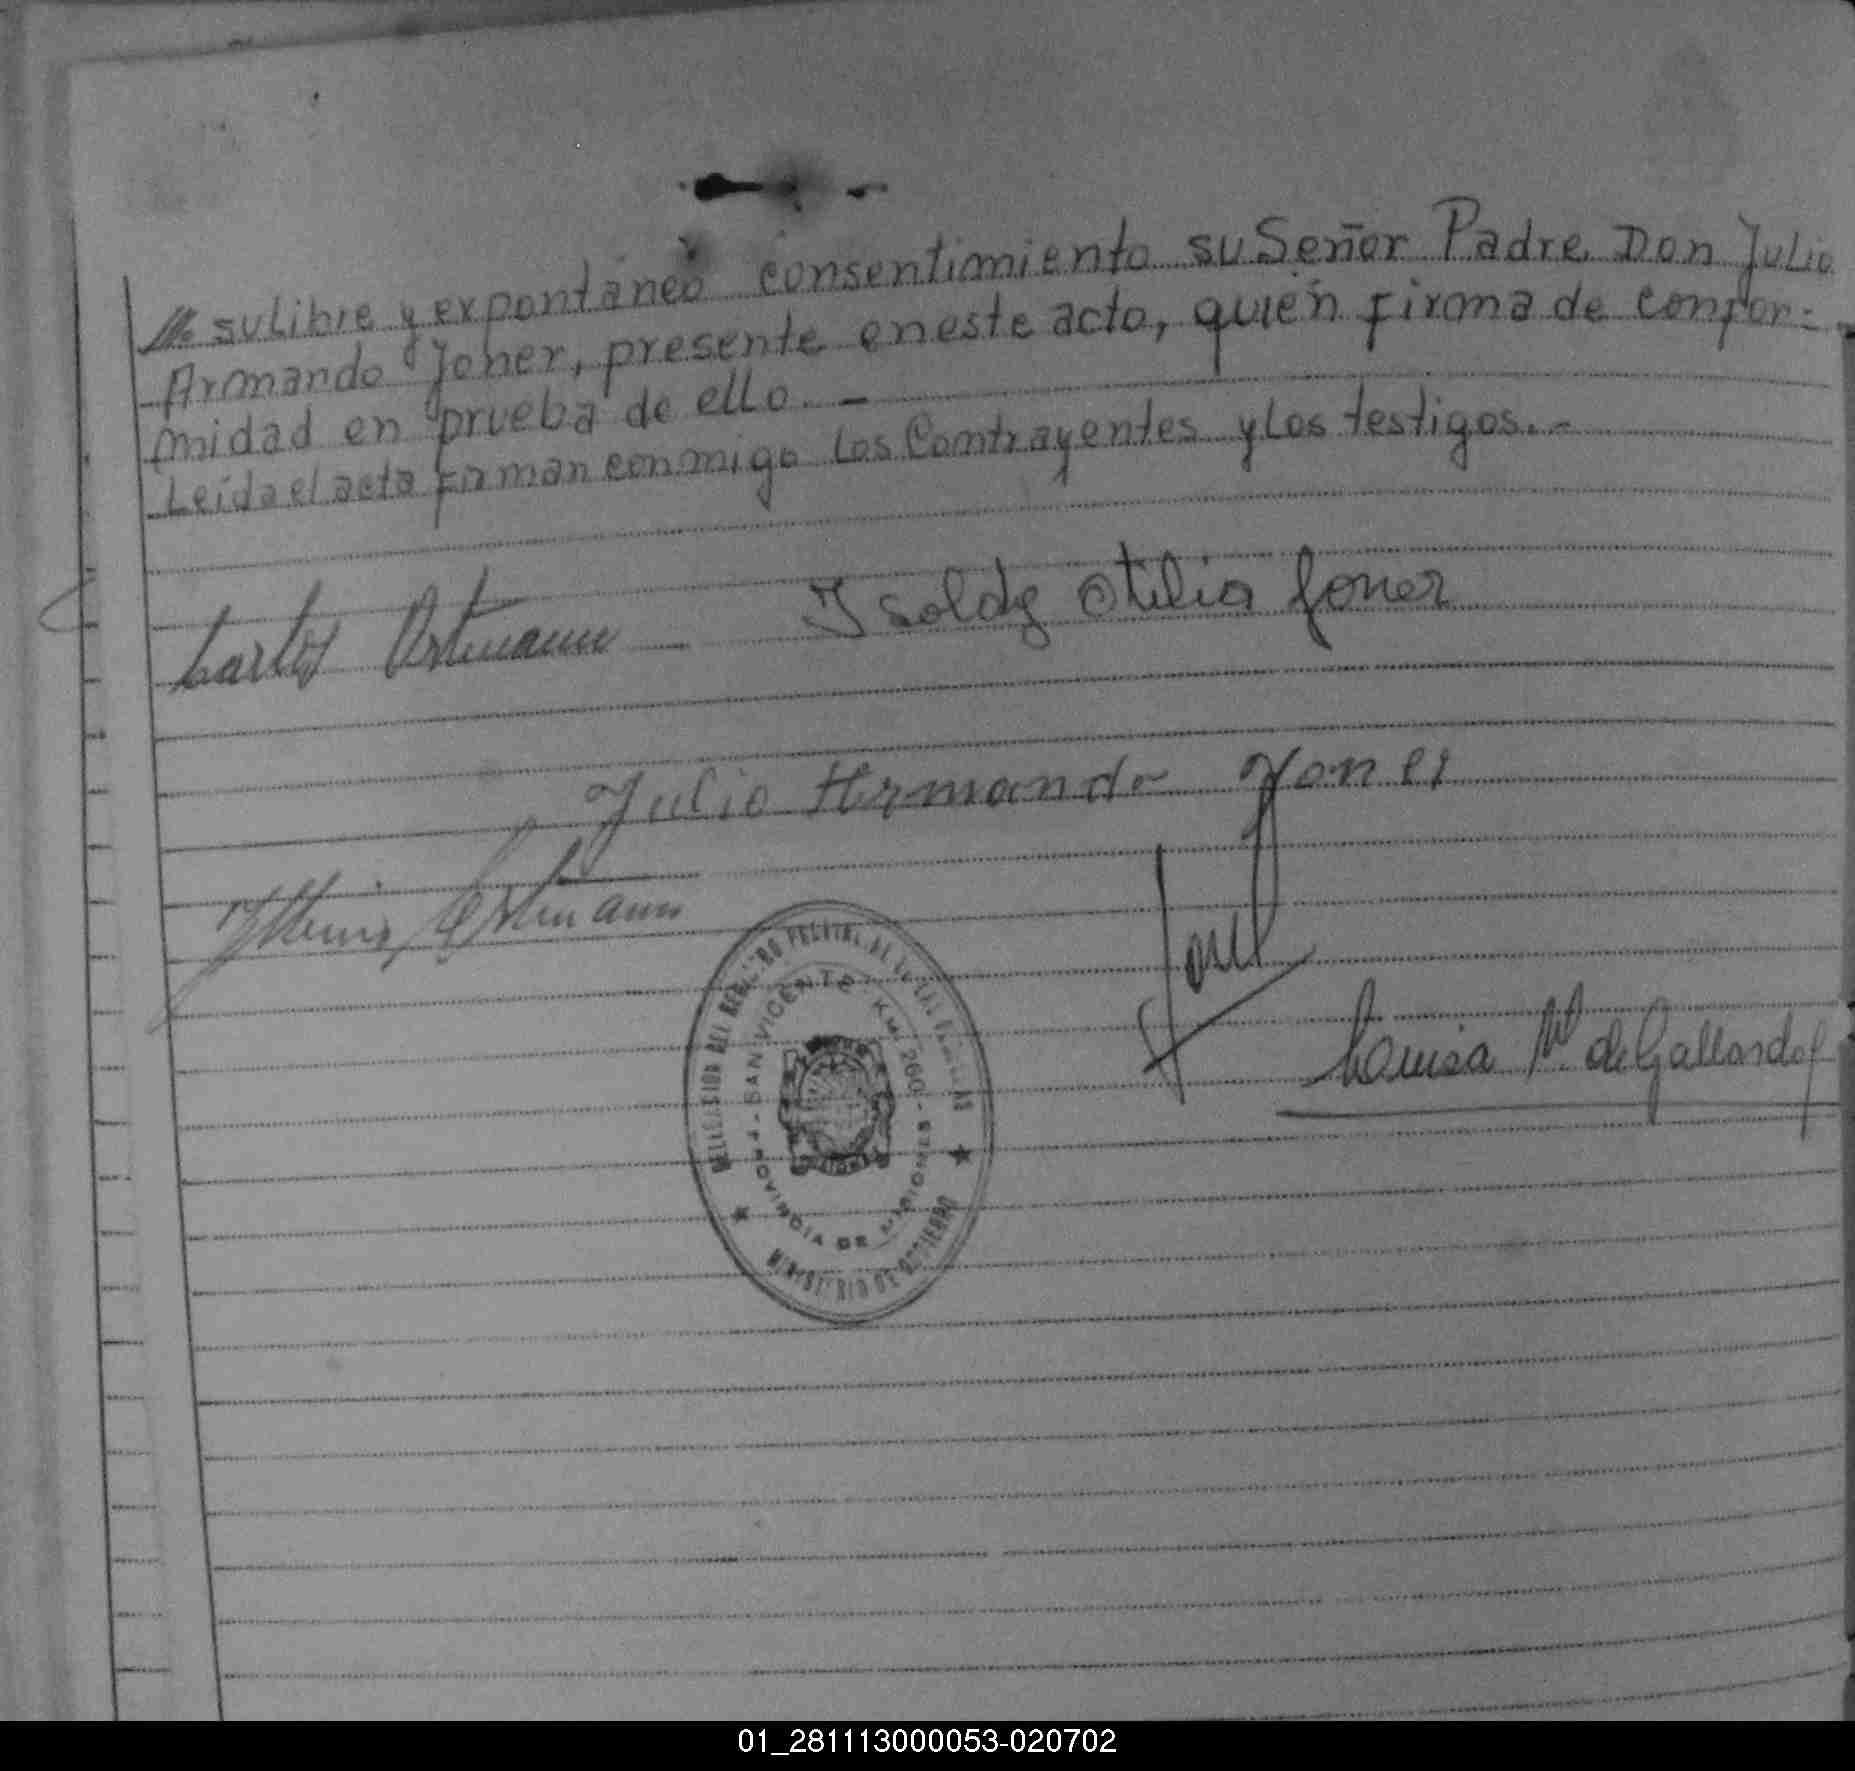 su libre y expontáneo consentimiento su Señor Padre Don Julio
Armando Joner, presente en este acto, quién firma de confor=
midad en prueba de ello. -
Leida el acta firman conmigo los Contrayentes y los testigos. -
Carlos Ortmann Isoldy Otilia Joner
Julio Armando Joner
Ortmann
Louisa M. de Gallardo
DELEGACION DEL REGISTRO PROVINCIAL DE LAS PERSONAS
SAN VICENTE - KM. 260 - PROVINCIA DE MISIONES
MINISTERIO DE GOBIERNO
01_281113000053-020702